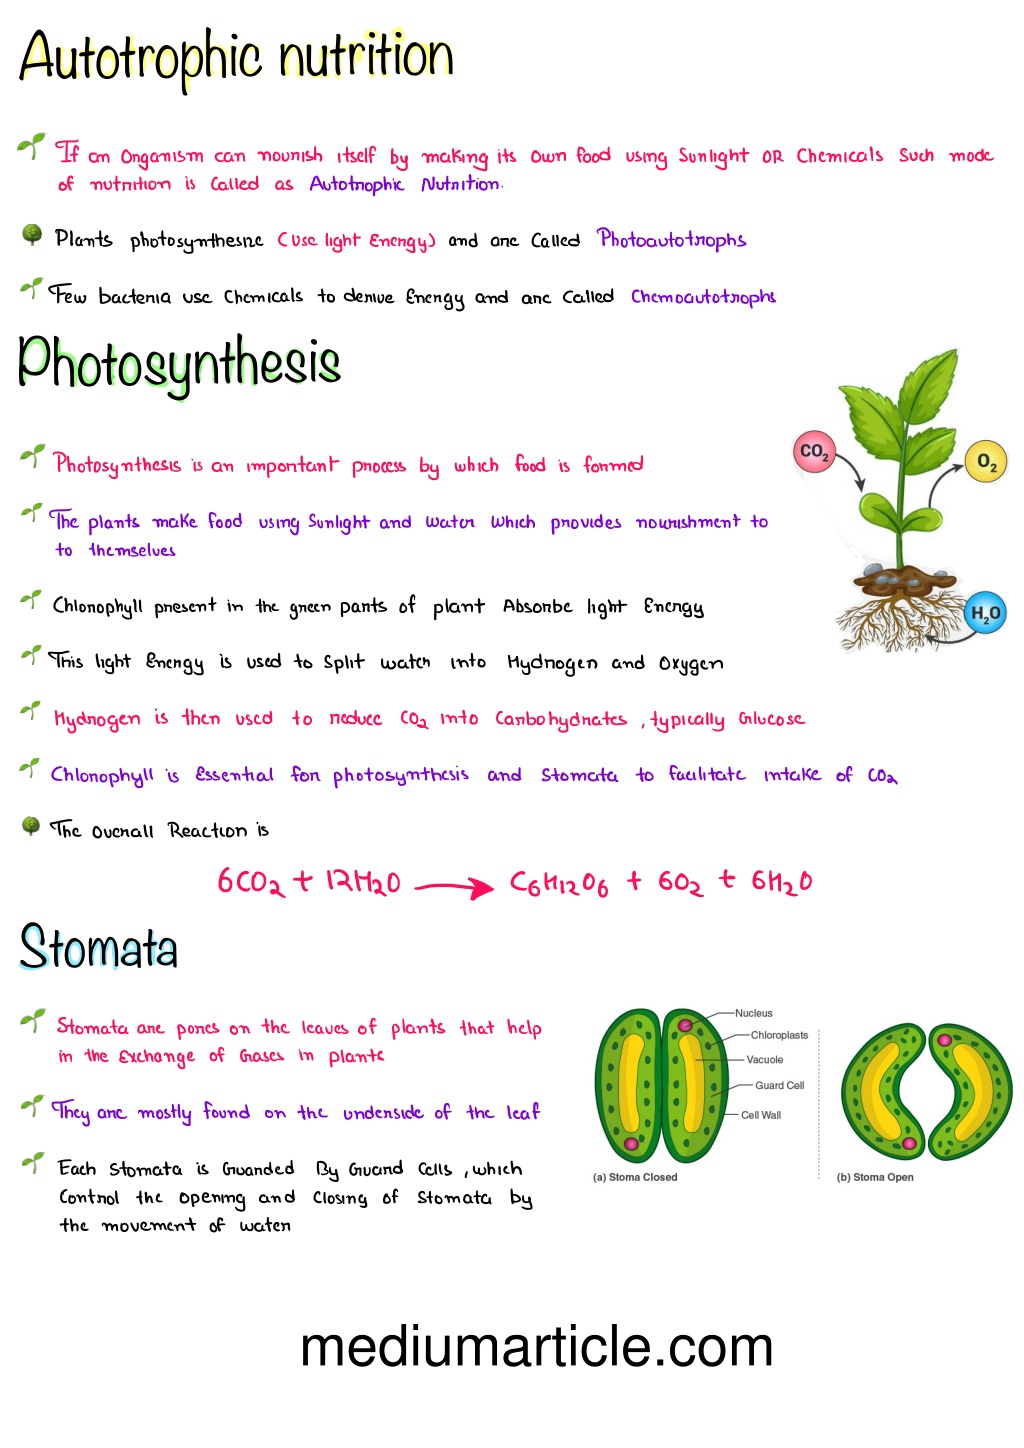 Autotrophic nutrition
If an Organism can nourish itself by making its own food using Sunlight OR Chemicals Such mode
of nutrition is Called as Autotrophic Nutrition.
Plants photosynthesize (Use light Energy) and are Called Photoautotrophs
Few bacteria use Chemicals to derive Energy and are Called Chemoautotrophs
Photosynthesis
Photosynthesis is an important process by which food is formed
The plants make food using Sunlight and Water Which provides nourishment to
to themselves
Chlorophyll present in the green parts of plant Absorbe light Energy
This light Energy is used to Split water into Hydrogen and Oxygen
Hydrogen is then used to reduce CO2 into Carbohydrates, typically Glucose
Chlorophyll is Essential for photosynthesis and Stomata to facilitate intake of CO2
The Overall Reaction is
6CO2 + 12H2O → C6H12O6 + 6O2 + 6H2O
CO2
O2
H2O
Stomata
Stomata are pores on the leaves of plants that help
in the Exchange of Gases in plants
They are mostly found on the underside of the leaf
Each Stomata is Guarded By Guard Cells, which
Control the opening and Closing of Stomata by
the movement of water
Nucleus
Chloroplasts
Vacuole
Guard Cell
Cell Wall
(a) Stoma Closed
(b) Stoma Open
mediumarticle.com